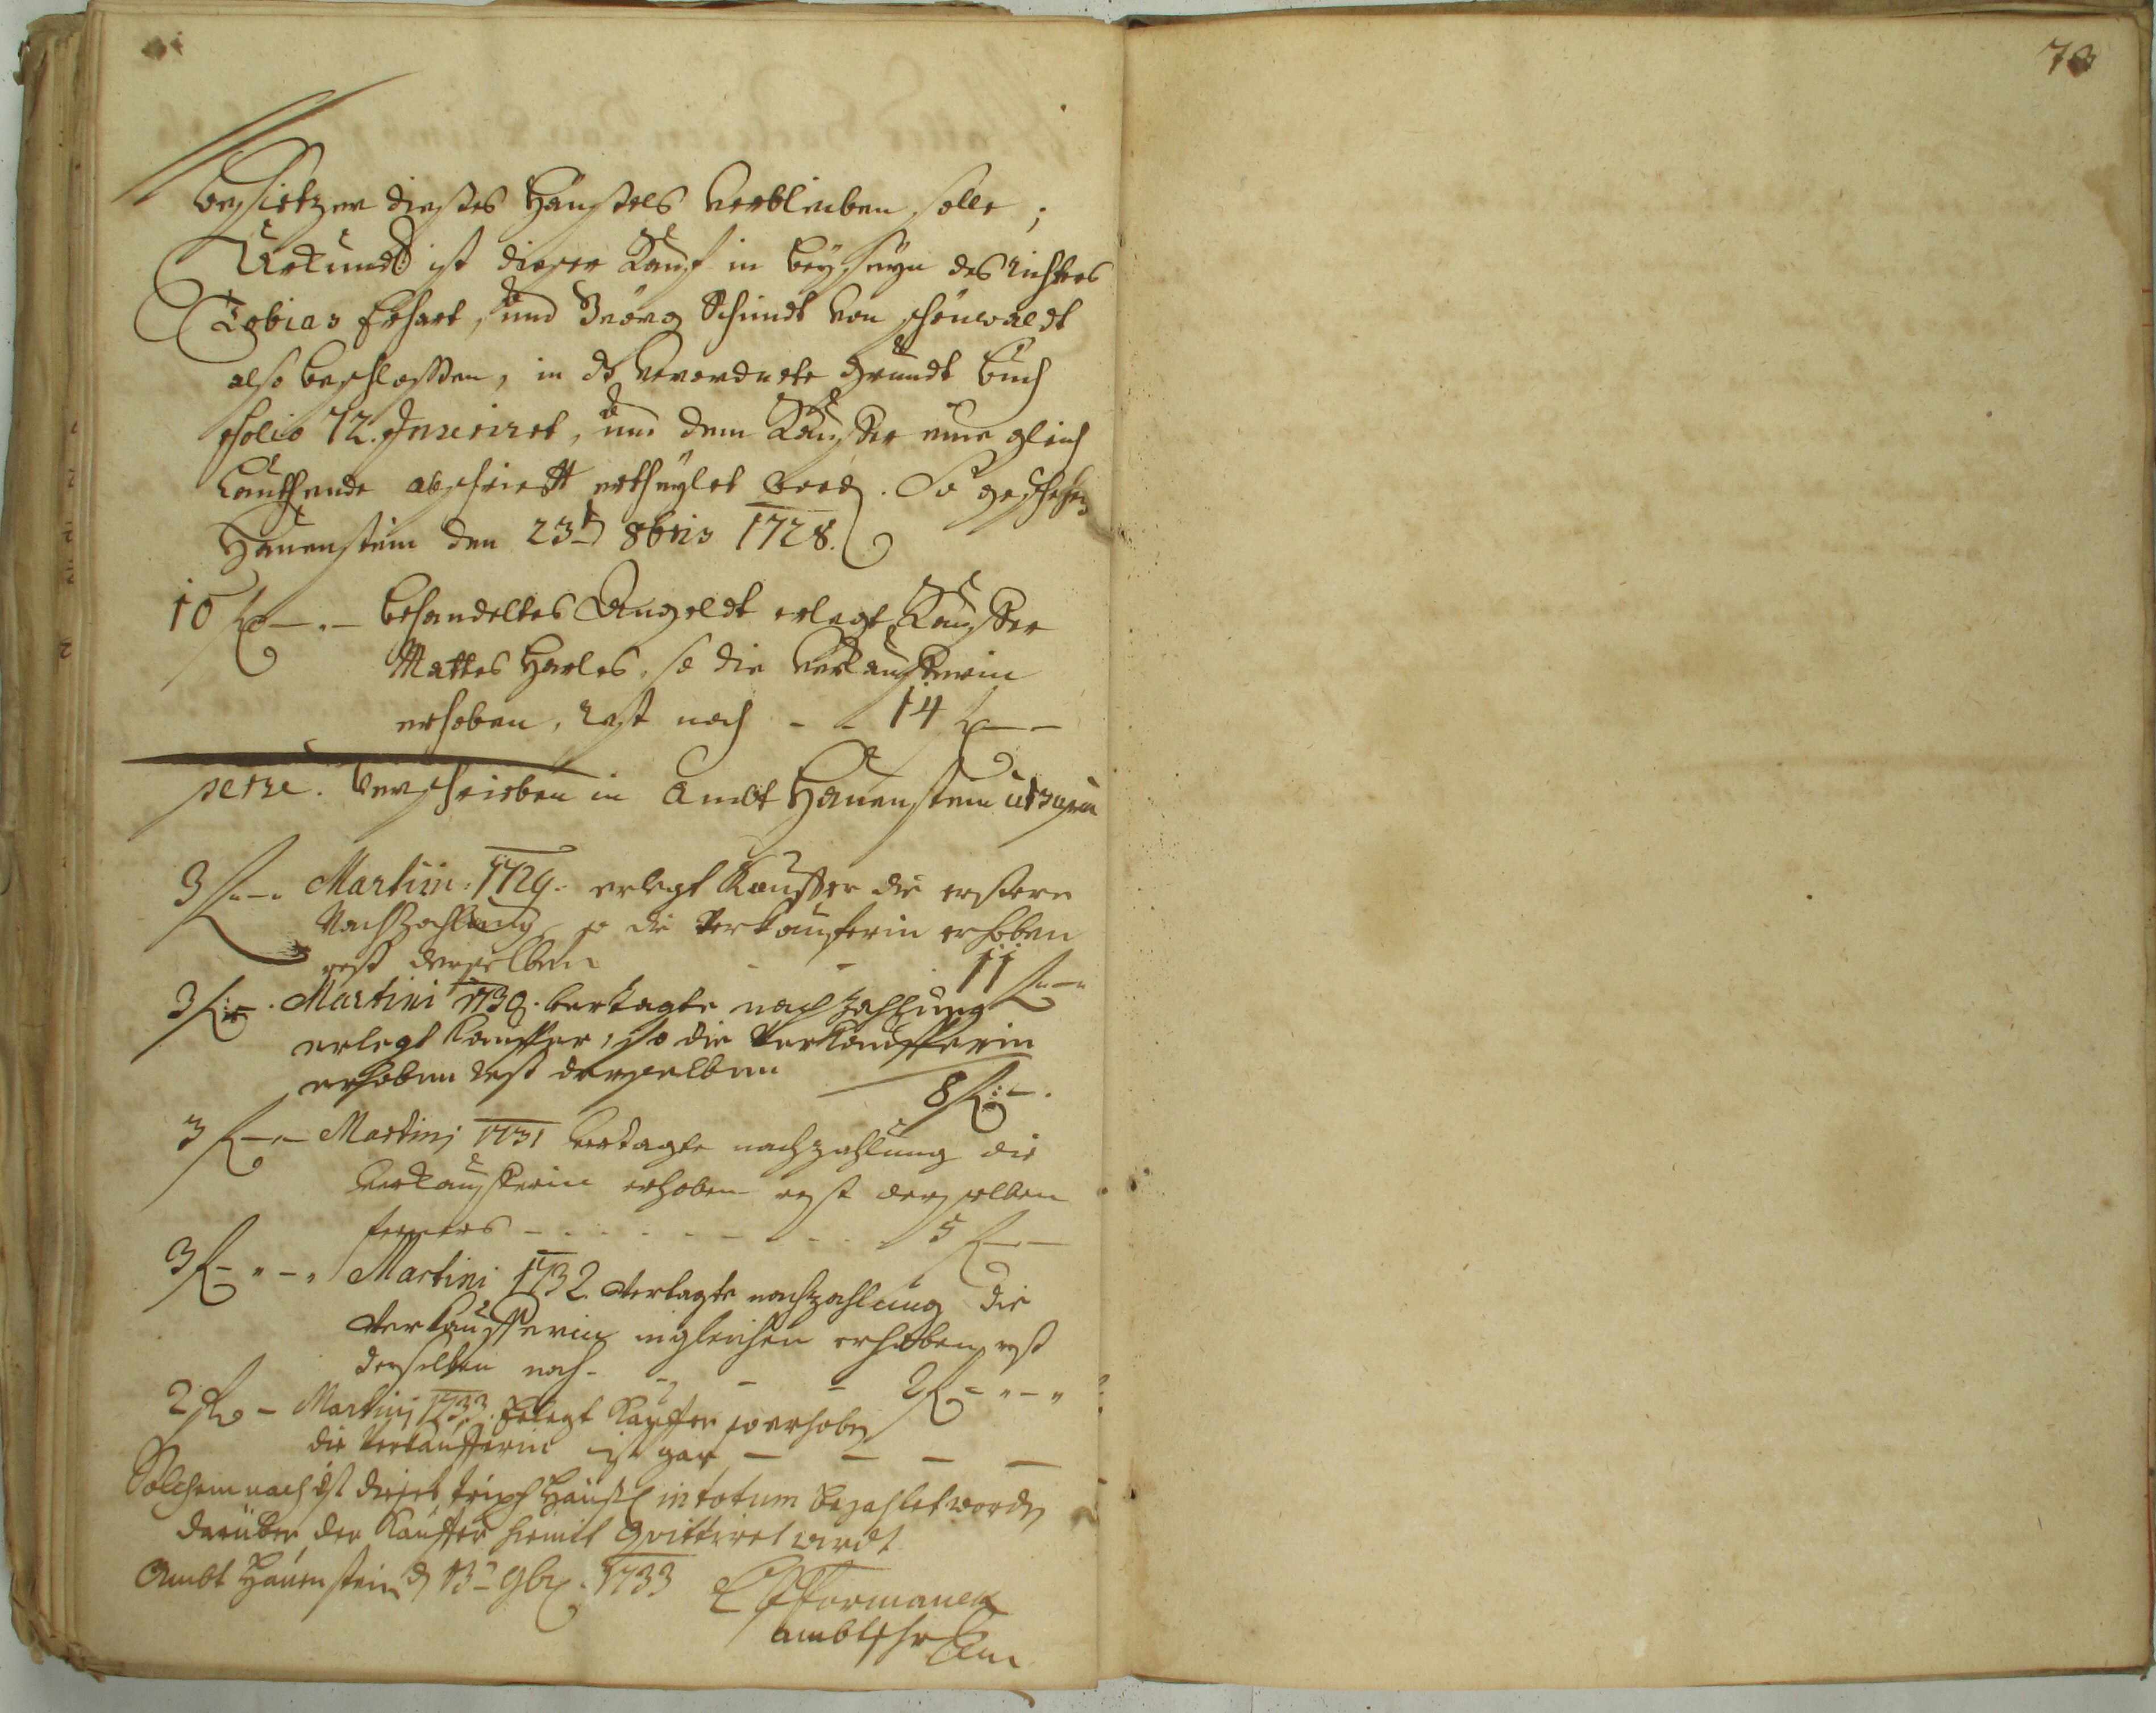 73
besietzer dießes Häußels verbleiben solle;
Urkundt ist dießer Kauf in beyseyn des Richters
Tobias Erhart, und Geörg Schmidt von schönwaldt
also beschlossen, in das verordnete Grundt Buch
folio 72. Inserirt, und dem Kauffer eine gleich
Lauthende abschriefft ertheylet word. So geschehen
Hauenstein den 23t 8bris 1728.
10 f — . — behandeltes Angeldt erlegt Kauffer
Mattes Harles, so die Verkaufferin
erhoben, Rest noch - - 14 f — —
perse. Verschrieben in Ambt Hauenstein ut supra
3 f — Martini 1729. erlegt Kauffer die erstere
Nachzahlung, so die Verkaufferin erhoben
rest derselben - - 11 f —
3 f — . Martini 1730. Vertagte nachzahlung
erlegt Kauffer, so die Verkaufferin
erhoben Rest derselben 8 f: — .
3 f — — Martinj 1731 Vertagte nachzahlung die
Verkaufferin erhoben rest derselben
ferners - - - - - - 5 f — —
3 f — " — " Martini 1732. Vertagte nachzahlung die
Verkaufferin ingleichen erhoben, rest
derselben noch - - - - 2 f — " — "
2 f — Martinj 1733. Erlegt Kauffer so erhoben
die Verkaufferin ist gar — — — —
Solchemnach ist dießes Häußl in totum bezahlet worden
darüber der Kauffer hiemit Quittiret wirdt
Ambt Hauenstein d 13t 9br. 1733
Fformanek
ambtschreiber